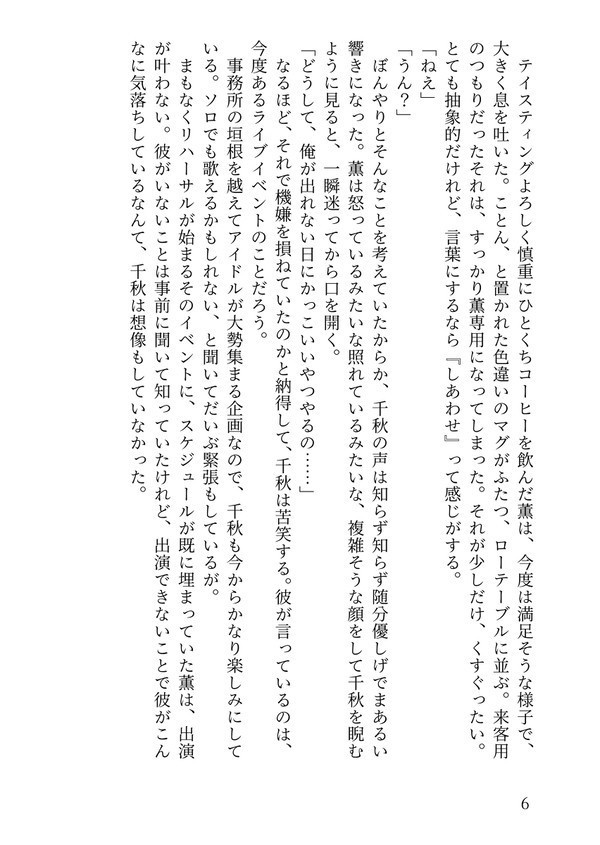 テイスティングよろしく慎重にひとくちコーヒーを飲んだ薫は、今度は満足そうな様子で、
大きく息を吐いた。ことん、と置かれた色違いのマグがふたつ、ローテーブルに並ぶ。来客用
のつもりだったそれは、すっかり薫専用になってしまった。それが少しだけ、くすぐったい。
とても抽象的だけれど、言葉にするなら『しあわせ』って感じがする。
「ねえ」
「うん？」
　ぼんやりとそんなことを考えていたからか、千秋の声は知らず知らず随分優しげでまあるい
響きになった。薫は怒っているみたいな照れているみたいな、複雑そうな顔をして千秋を睨む
ように見ると、一瞬迷ってから口を開く。
「どうして、俺が出れない日にかっこいいやつやるの……」
　なるほど、それで機嫌を損ねていたのかと納得して、千秋は苦笑する。彼が言っているのは、
今度あるライブイベントのことだろう。
　事務所の垣根を越えてアイドルが大勢集まる企画なので、千秋も今からかなり楽しみにして
いる。ソロでも歌えるかもしれない、と聞いてだいぶ緊張もしているが。
　まもなくリハーサルが始まるそのイベントに、スケジュールが既に埋まっていた薫は、出演
が叶わない。彼がいないことは事前に聞いて知っていたけれど、出演できないことで彼がこん
なに気落ちしているなんて、千秋は想像もしていなかった。
6